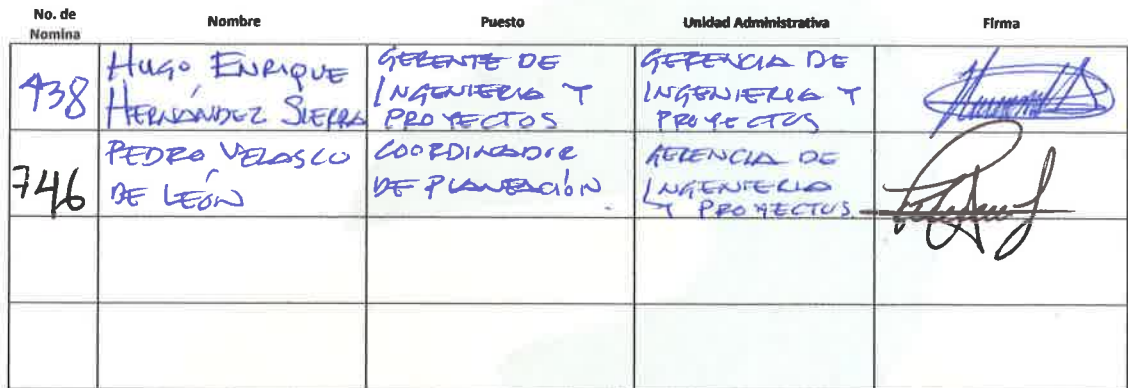 No. de Nomina
Nombre
Puesto
Unidad Administrativa
Firma
438
HUGO ENRIQUE
HERNÁNDEZ SIERRA
GERENTE DE
INGENIERIA Y
PROYECTOS
GERENCIA DE
INGENIERIA Y
PROYECTOS
746
PEDRO VELASCO
DE LEÓN
COORDINADOR
DE PLANEACIÓN
GERENCIA DE
INGENIERIA
Y PROYECTOS